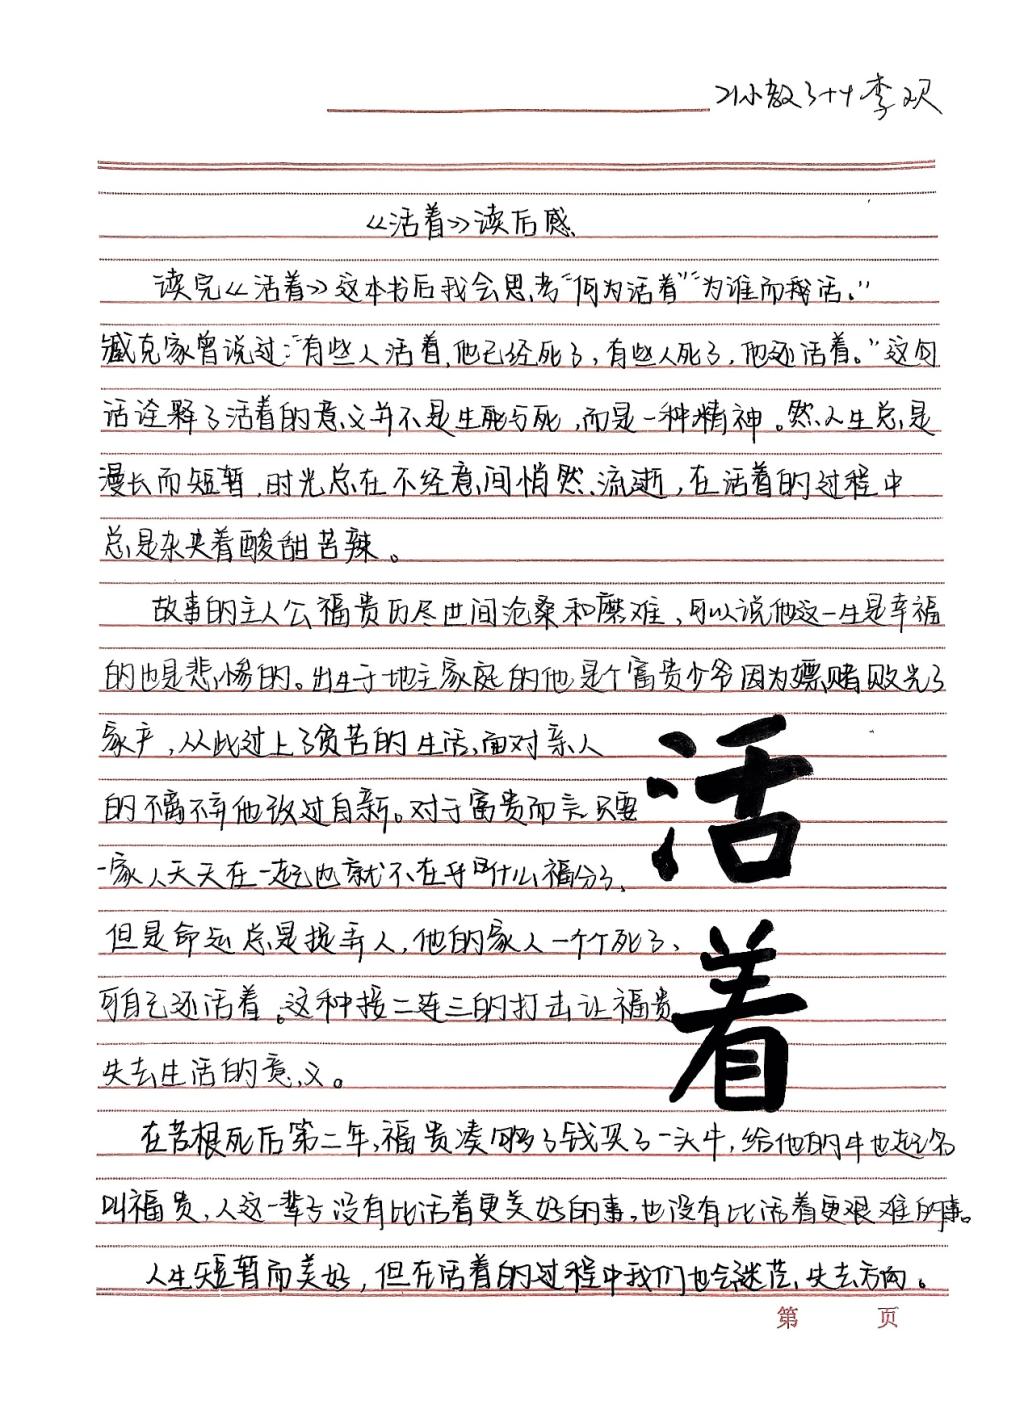 21小教3+4 李欢
《活着》读后感
读完《活着》这本书后我会思考“何为活着”“为谁而活。”
臧克家曾说过:“有些人活着,他已经死了,有些人死了,他还活着。”这句
话诠释了活着的意义并不是生死与死,而是一种精神。然人生总是
漫长而短暂,时光总在不经意间悄然流逝,在活着的过程中
总是杂夹着酸甜苦辣。
故事的主人公福贵历尽世间沧桑和磨难,可以说他这一生是幸福
的也是悲惨的。出生于地主家庭的他是个富贵少爷因为嫖赌败光了
家产,从此过上了贫苦的生活,面对亲人
的不离不弃他改过自新。对于富贵而言只要
一家人天天在一起也就不在乎什么福分了,
但是命运总是捉弄人,他的家人一个个死了,
可自己还活着。这种接二连三的打击让福贵
失去生活的意义。
活
着
在苦根死后第二年,福贵凑够了钱买了一头牛,给他的牛也起名
叫福贵,人这一辈子没有比活着更美好的事,也没有比活着更艰难的事。
人生短暂而美好,但在活着的过程中我们也会迷茫、失去方向。
第 页